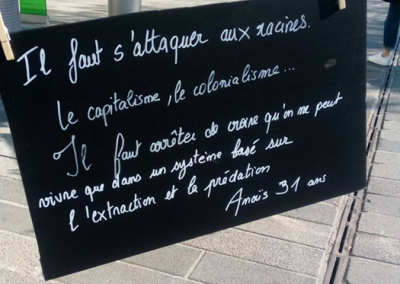 Il faut s'attaquer aux racines.
Le capitalisme, le colonialisme...
Il faut arrêter de croire qu'on ne peut
vivre que dans un système basé sur
l'extraction et la prédation
Anaïs 31 ans